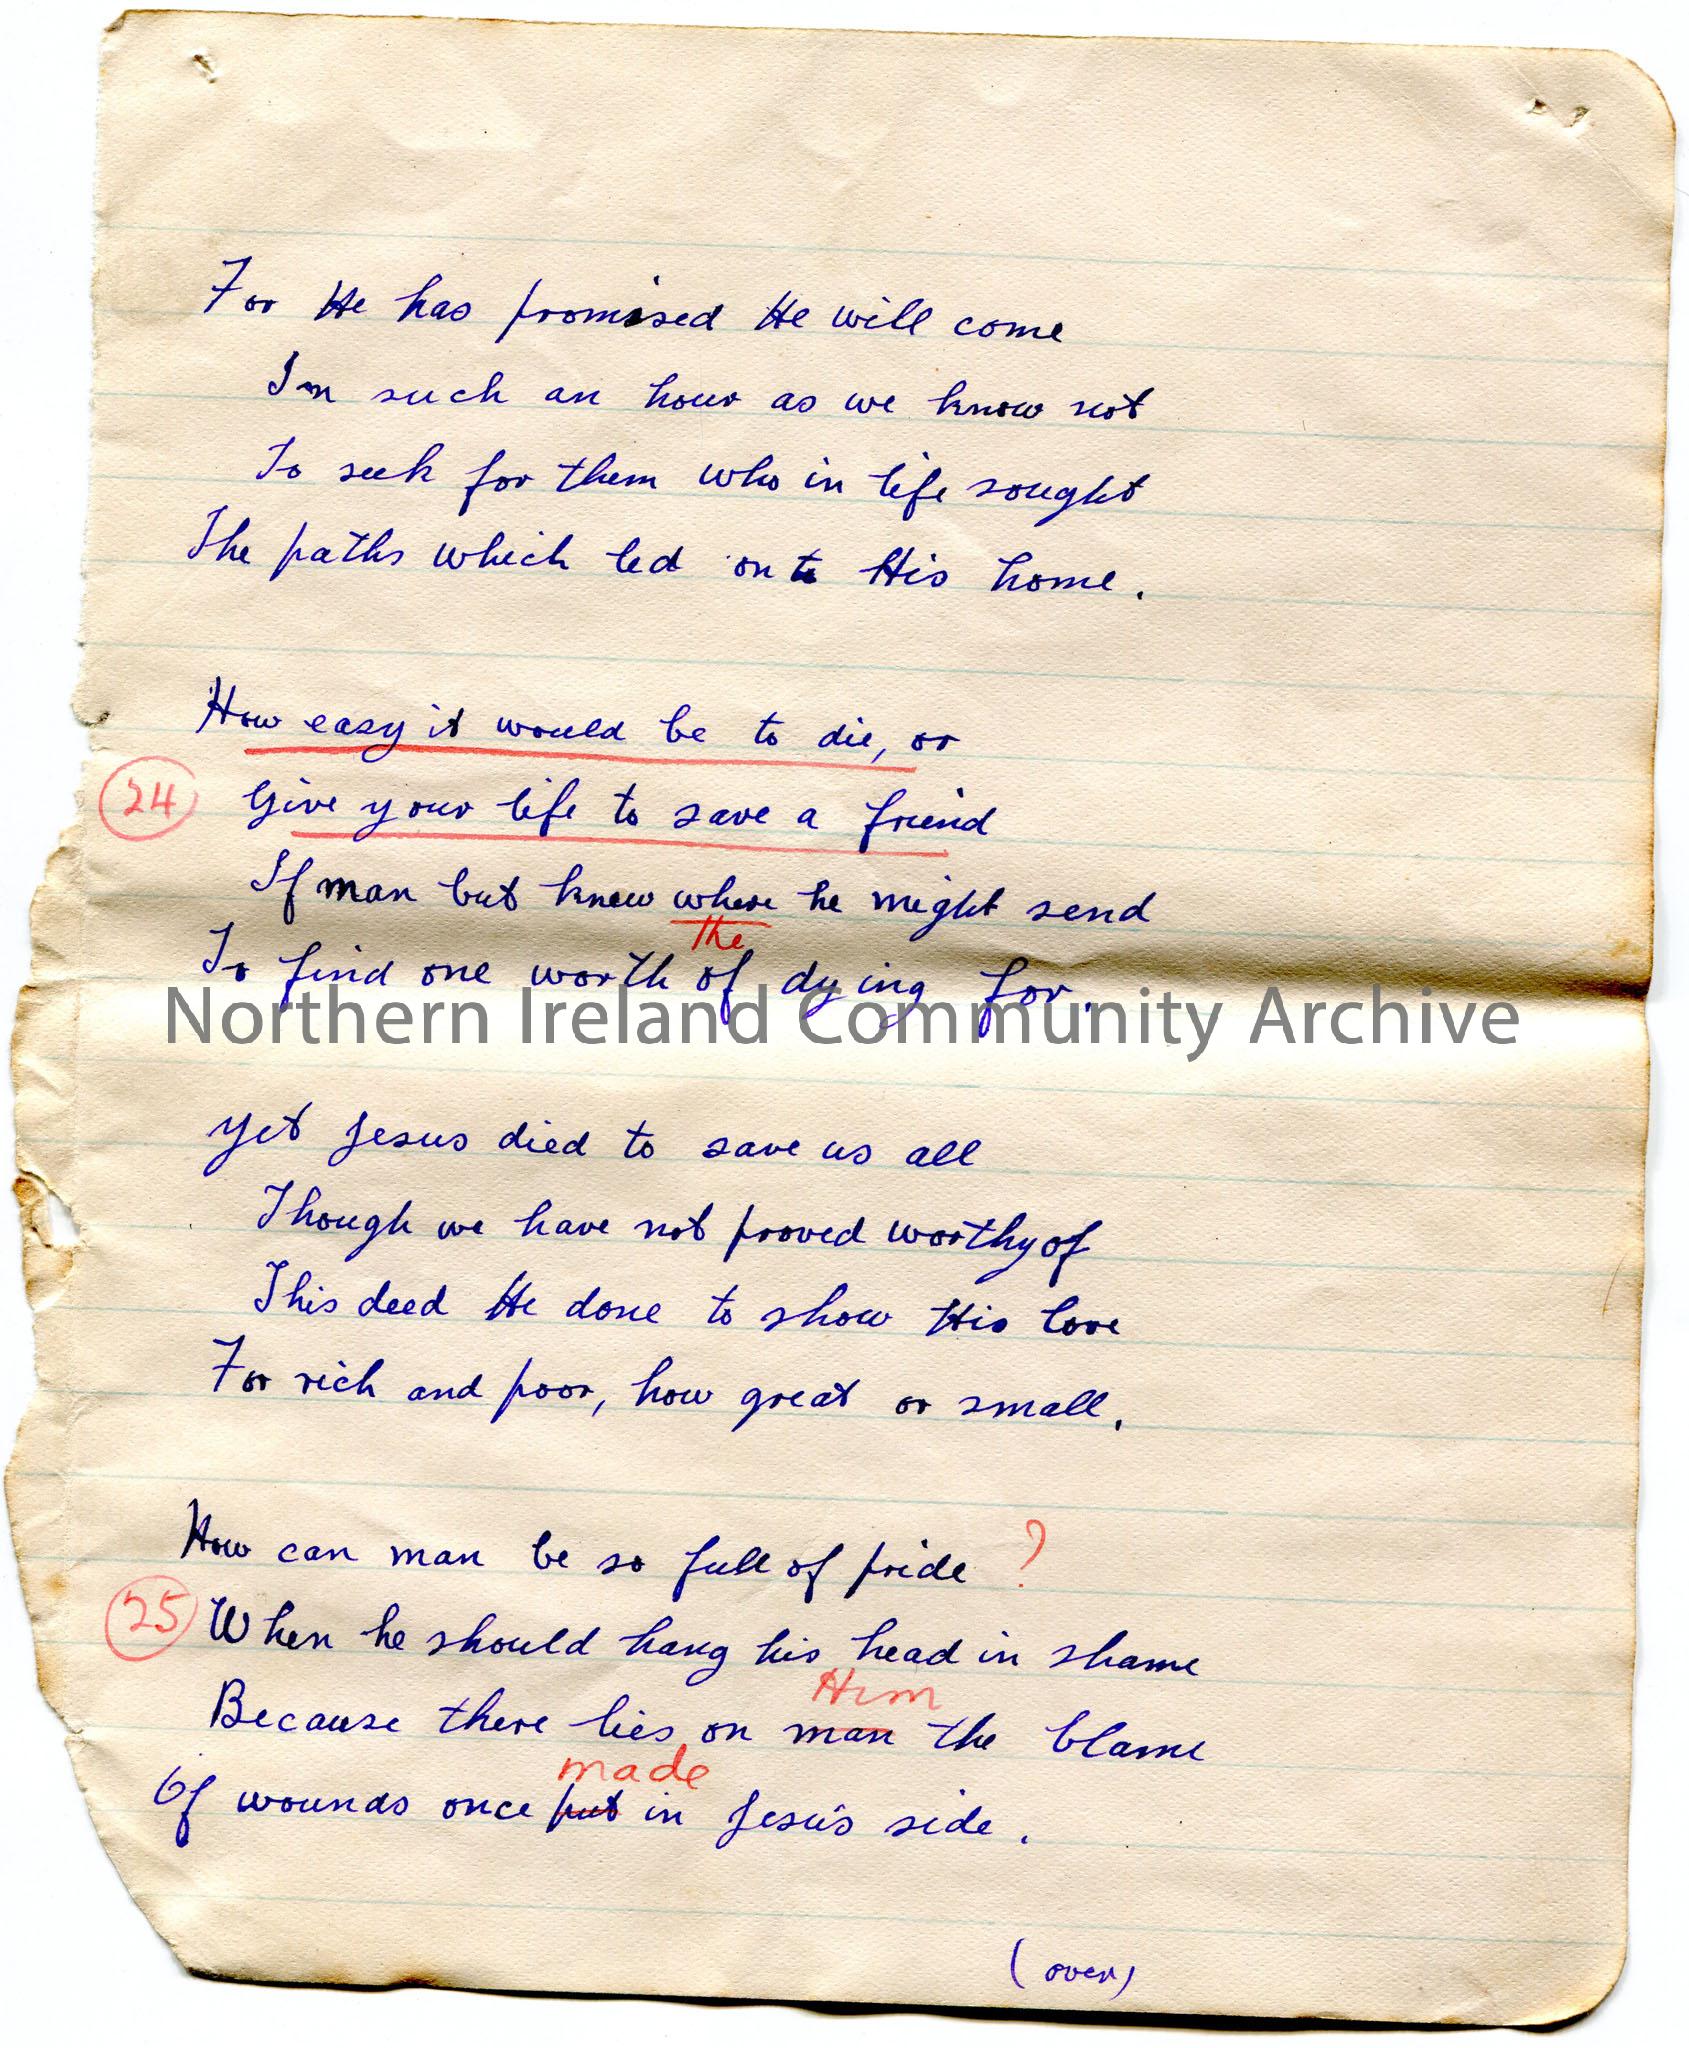 For He has promised He will come
In such an hour as we know not
To seek for them who in life sought
The paths which led on to His home.
How easy it would be to die, or
24 Give your life to save a friend
If man but knew where he might send
the
To find one worth of dying for.
Northern Ireland Community Archive
Yet Jesus died to save us all
Though we have not proved worthy of
This deed He done to show His love
For rich and poor, how great or small.
How can man be so full of pride ?
25 When he should hang his head in shame
Him
Because there lies on man the blame
made
Of wounds once put in Jesu's side.
(over)